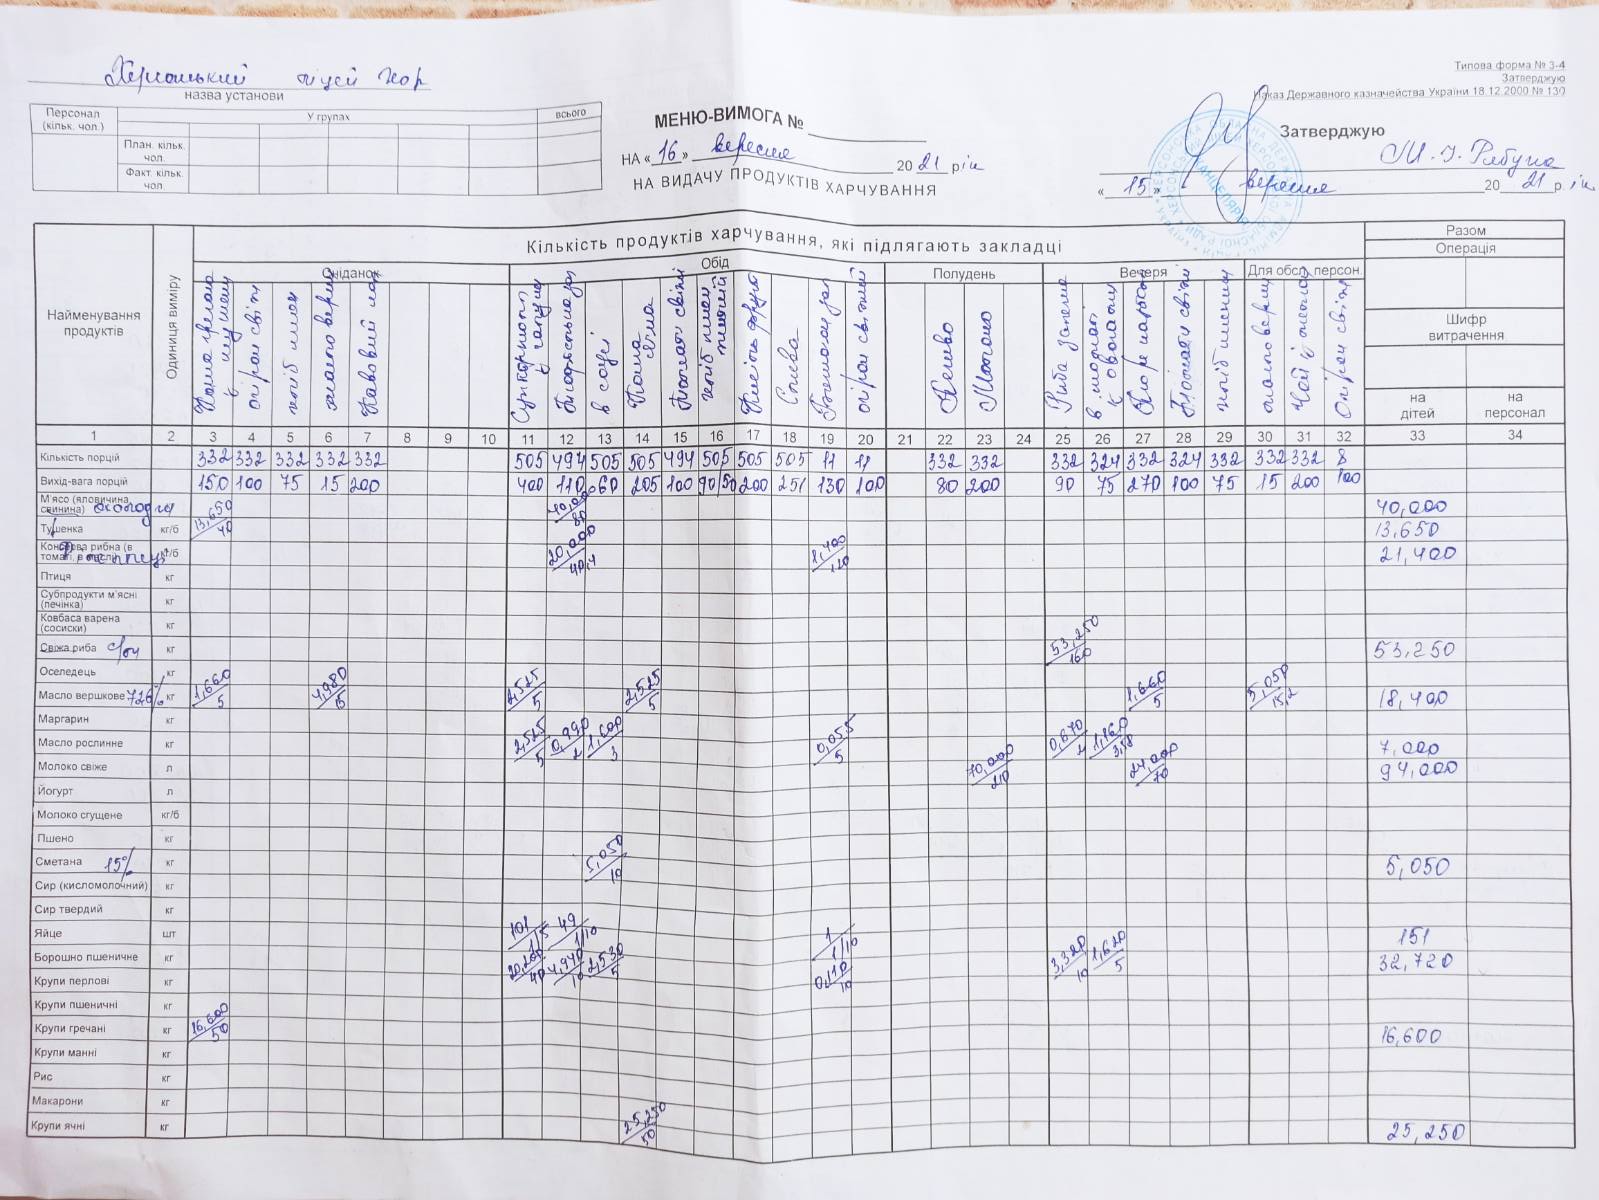 Херсонський ліцей ХОР
назва установи
Типова форма № З-4
Затверджую
Наказ Державного казначейства України 18.12.2000 № 130
Персонал (кільк. чол.)
У групах
всього
План. кільк. чол.
Факт. кільк. чол.
МЕНЮ-ВИМОГА №
НА «16» вересня 2021 рік
НА ВИДАЧУ ПРОДУКТІВ ХАРЧУВАННЯ
Затверджую
«15» вересня 2021 р.
Найменування продуктів
Одиниця виміру
Кількість продуктів харчування, які підлягають закладці
Разом
Операція
Сніданок
Обід
Полудень
Вечеря
Для обсл. персон.
огірок свіж
масло верш
Какао
в соусі
огірок свіжий
Печиво
Молоко
Риба
масло верш
Огірок свіж
Шифр витрачення
на дітей
на персонал
1 2 3 4 5 6 7 8 9 10 11 12 13 14 15 16 17 18 19 20 21 22 23 24 25 26 27 28 29 30 31 32 33 34
Кількість порцій 332 332 332 332 332 505 494 505 505 494 505 505 505 11 11 332 332 332 324 332 324 332 332 332 8
Вихід-вага порцій 150 100 75 15 200 400 110 60 205 100 90/50 200 251 130 100 80 200 90 75 270 100 75 15 200 100
М'ясо (яловичина, свинина) 40,000/80 40,000
Тушенка кг/б 13,650/40 13,650
Консерва рибна (в томаті, в маслі) кг/б 20,000/40,4 1,400/120 21,400
Птиця кг
Субпродукти м'ясні (печінка) кг
Ковбаса варена (сосиски) кг
Свіжа риба с/м кг 53,250/160 53,250
Оселедець кг
Масло вершкове 72,6% кг 1,660/5 4,980/15 2,525/5 2,525/5 1,660/5 5,050/15,2 18,400
Маргарин кг
Масло рослинне кг 2,525/5 0,990/2 1,600/3 0,055/5 0,670/2 1,160/3,58 7,000
Молоко свіже л 70,000/210 24,000/70 94,000
Йогурт л
Молоко сгущене кг/б
Пшено кг
Сметана 15% кг 5,050/10 5,050
Сир (кисломолочний) кг
Сир твердий кг
Яйце шт 101/1/5 49/1/10 1/1/10 151
Борошно пшеничне кг 20,200/40 4,940/10 2,530/5 0,110/10 3,320/10 1,620/5 32,720
Крупи перлові кг
Крупи пшеничні кг
Крупи гречані кг 16,600/50 16,600
Крупи манні кг
Рис кг
Макарони кг
Крупи ячні кг 25,250/50 25,250